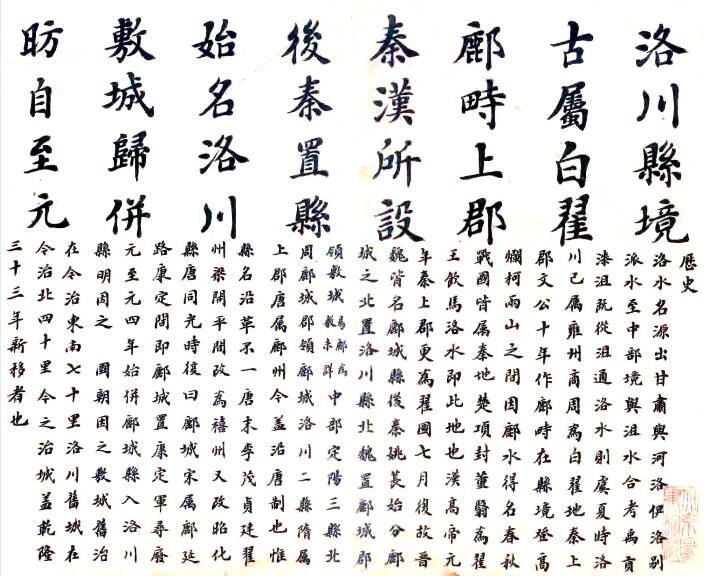 洛川縣境
古屬白翟
鄜畤上郡
秦漢所設
後秦置縣
始名洛川
敷城歸併
昉自至元
歷史
洛水名源出甘肅與河洛伊洛別
派水至中部境與沮水合考禹貢
漆沮既從沮通洛水則虞夏時洛
川已屬雍州商周為白翟地秦上
郡文公十年作鄜時在縣境登高
爛柯兩山之間因鄜水得名春秋
戰國皆屬秦地楚項封董翳為翟
王飲馬洛水即此地也漢高帝元
年秦上郡更為翟國七月復故晉
魏皆名鄜城縣後秦姚萇始分鄜
城之北置洛川縣北魏置鄜城郡
領敷城易鄜為敷未詳中部定陽三縣北
周鄜城郡領鄜城洛川二縣隋屬
上郡唐屬鄜州今蓋沿唐制也惟
縣名沿革不一唐末李茂貞建翟
州梁開平間改為禧州又改昭化
縣唐同光時復曰鄜城宋屬鄜延
路康定間即鄜城置康定軍尋廢
元至元四年始併鄜城縣入洛川
縣明因之 國朝因之敷城舊治
在今治東南七十里洛川舊城在
今治北四十里今之治城蓋乾隆
三十三年新移者也